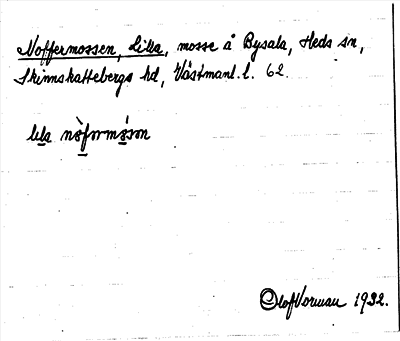 Noffermossen, Lilla, mosse å Bysala, Heds sn,
Skinnskattebergs hd, Västmanl. l. 62.
lila nòformòson
Olof Vorman 1932.